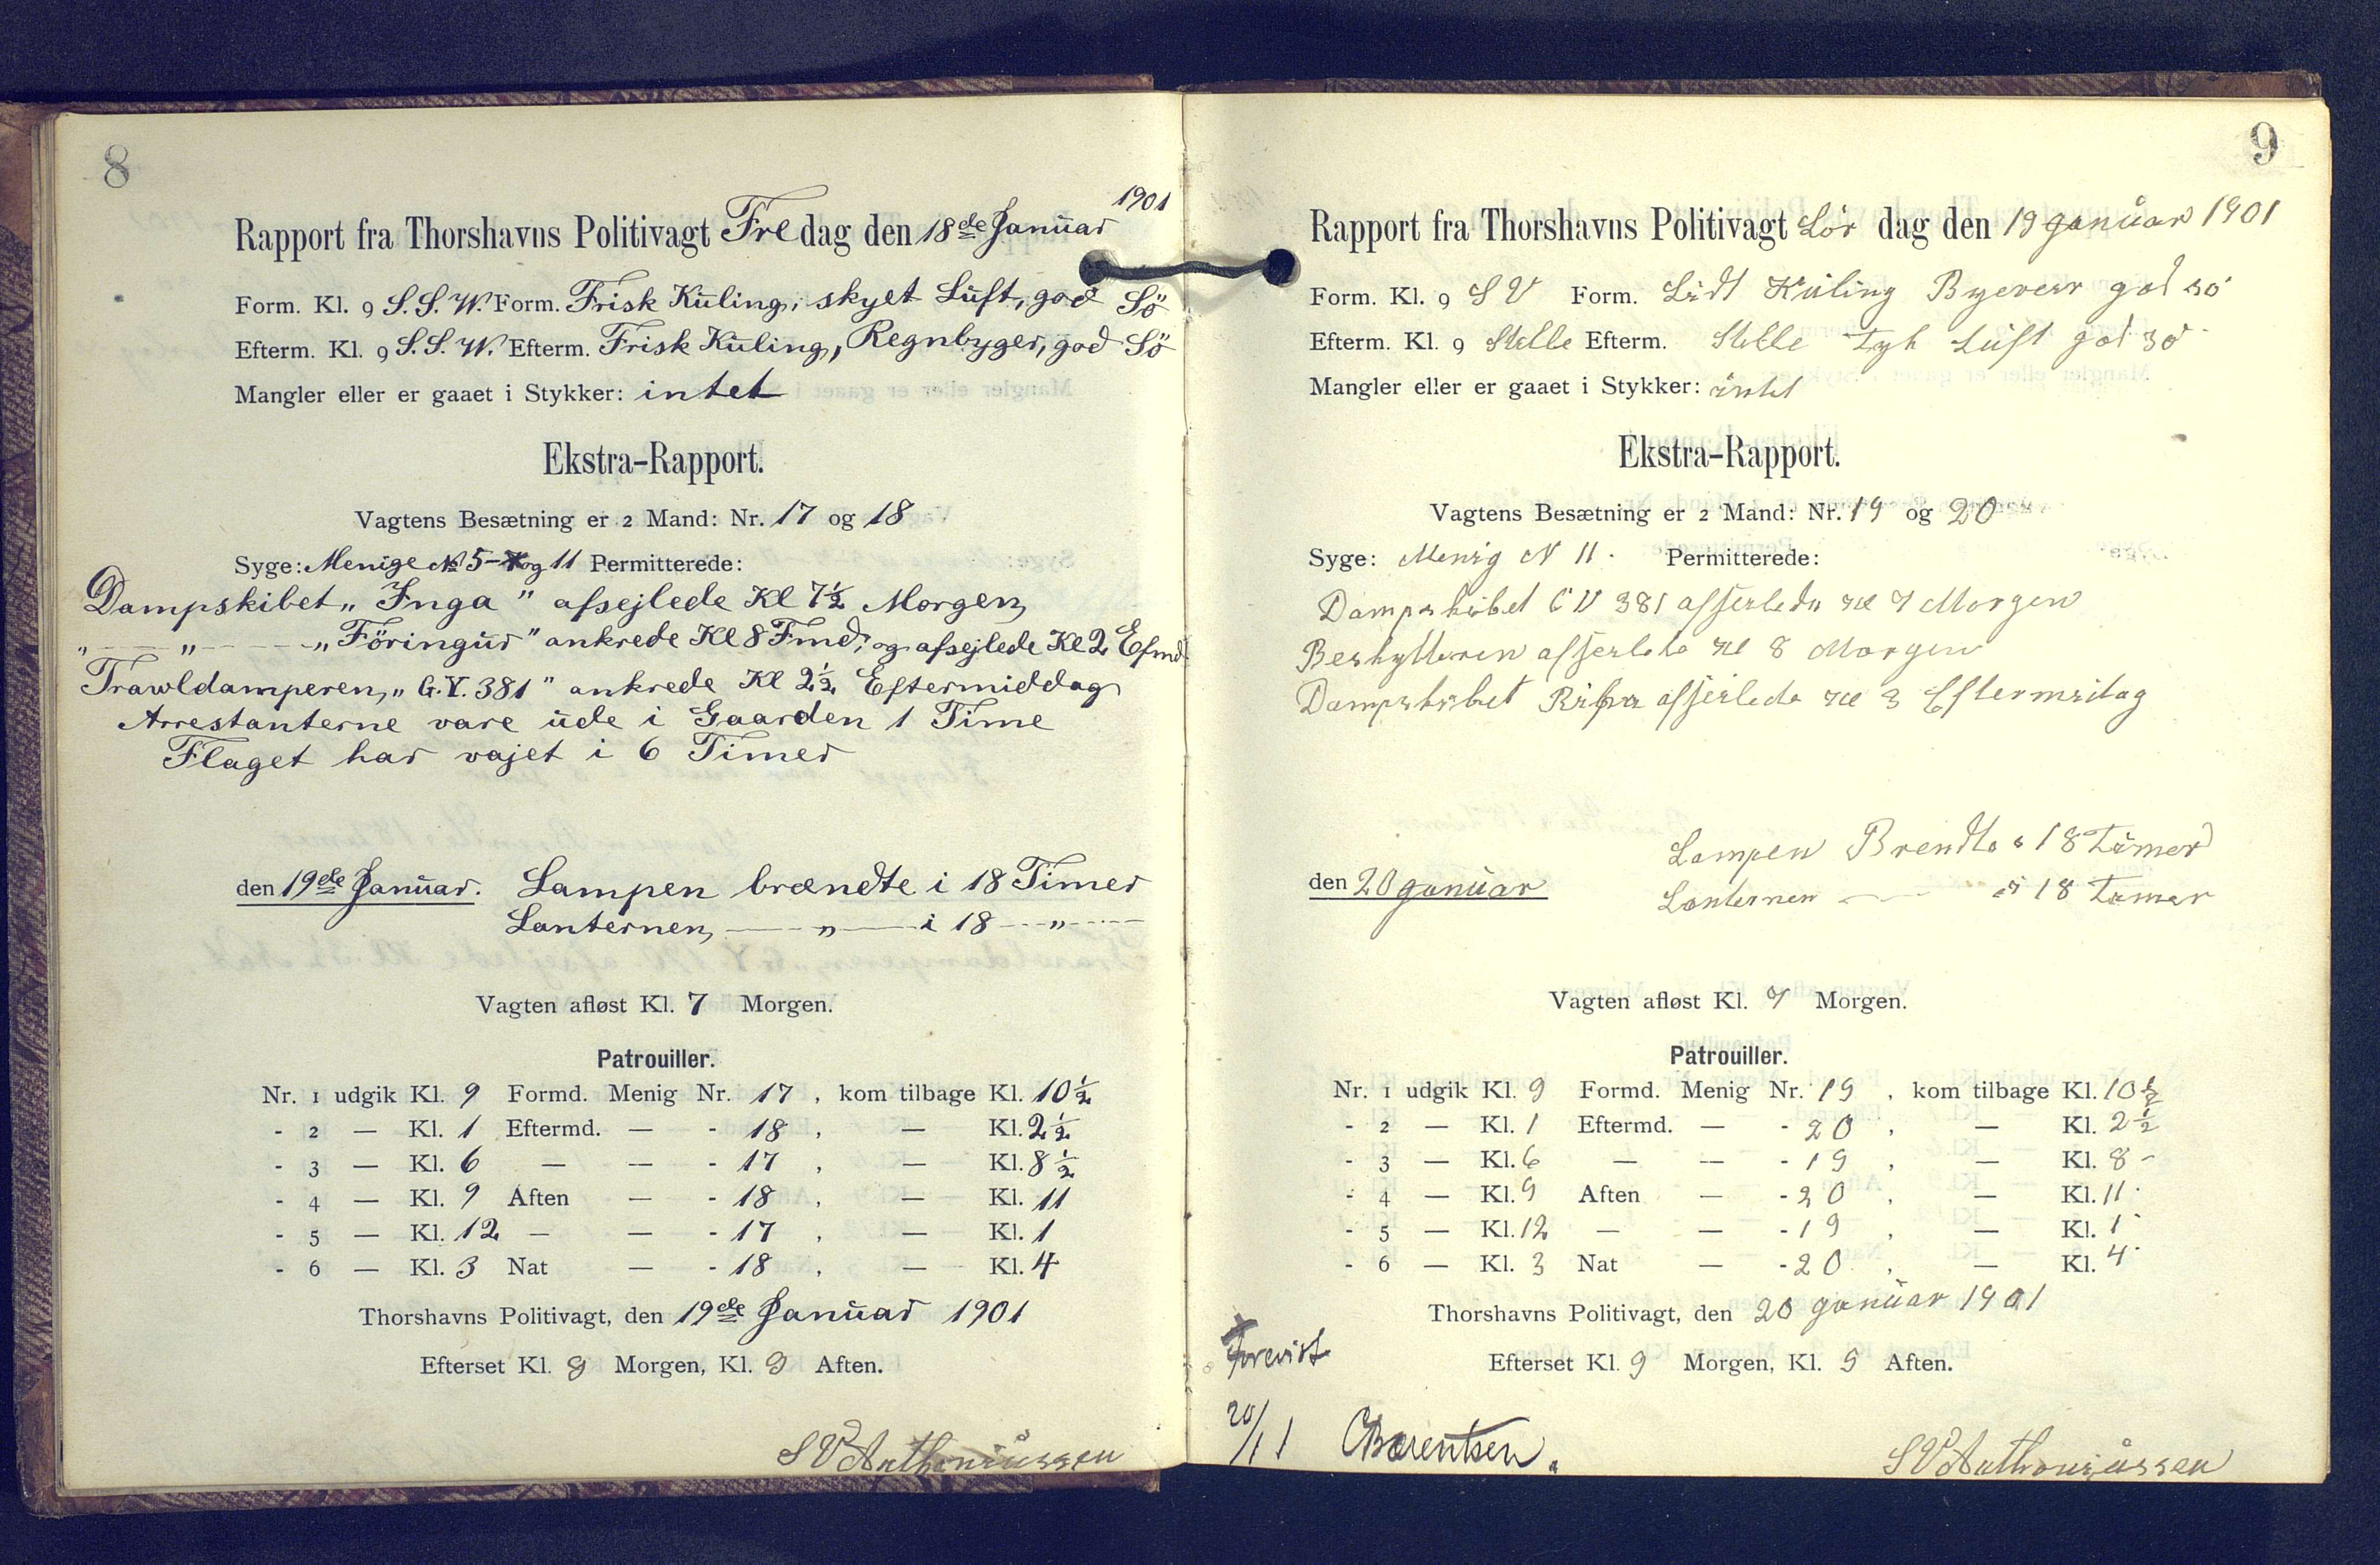 8
1901
Rapport fra Thorshavns Politivagt Fredag den 18de Januar
Form. Kl. 9 S.S.W. Form. Frisk Kuling, skyet Luft, god Sö
Efterm. Kl. 9 S.S.W. Efterm. Frisk Kuling, Regnbyger, god Sö
Mangler eller er gaaet i Stykker: intet
Ekstra-Rapport.
Vagtens Besætning er 2 Mand: Nr. 17 og 18
Syge: Menige № 5 - og 11 Permitterede:
Dampskibet „Inga" afsejlede Kl 7½ Morgen
„ — „ — „Föringur" ankrede Kl 8 Fmd; og afsejlede Kl 2 Efmd
Trawldamperen, „G.Y. 381" ankrede Kl 2½ Eftermiddag
Arrestanterne vare ude i Gaarden 1 Time
Flaget har vajet i 6 Timer
den 19de Januar. Lampen brændte i 18 Timer
Lanternen, — „ — i 18 — „ —
Vagten afløst Kl. 7 Morgen.
Patrouiller.
Nr. 1 udgik Kl. 9 Formd. Menig Nr. 17, kom tilbage Kl. 10½
- 2 — Kl. 1 Eftermd. — - 18, — Kl. 2½
- 3 — Kl. 6 — — - 17, — Kl. 8½
- 4 — Kl. 9 Aften — - 18, — Kl. 11
- 5 — Kl. 12 — — - 17, — Kl. 1
- 6 — Kl. 3 Nat — - 18, — Kl. 4
Thorshavns Politivagt, den 19de Januar 1901
Efterset Kl. 9 Morgen, Kl. 9 Aften.
S V Anthoniussen
9
Rapport fra Thorshavns Politivagt Lör dag den 19 januar 1901
Form. Kl. 9 S V Form. Lidt Kuling Byeveir god sö
Efterm. Kl. 9 Stelle Efterm. Stelle tyk Luft god sö
Mangler eller er gaaet i Stykker: intet
Ekstra-Rapport.
Vagtens Besætning er 2 Mand: Nr. 19 og 20
Syge: Menig N 11. Permitterede:
Dampskibet 381 afseilede Kl 7 Morgen
Beskytteren afseilede Kl 8 Morgen
Dampskibet afseilede Kl 3 Eftermidag
Lampen Brendte i 18 timer
den 20 januar Lanternen — i 18 timer
Vagten afløst Kl. 7 Morgen.
Patrouiller.
Nr. 1 udgik Kl. 9 Formd. Menig Nr. 19, kom tilbage Kl. 10½
- 2 — Kl. 1 Eftermd. — - 20, — Kl. 2½
- 3 — Kl. 6 — — - 19, — Kl. 8 -
- 4 — Kl. 9 Aften — - 20, — Kl. 11
- 5 — Kl. 12 — — - 19, — Kl. 1
- 6 — Kl. 3 Nat — - 20, — Kl. 4
Thorshavns Politivagt, den 20 januar 1901
Forevist
Efterset Kl. 9 Morgen, Kl. 9 Aften.
20/1 1 CBærentsen.
S V Anthoniussen